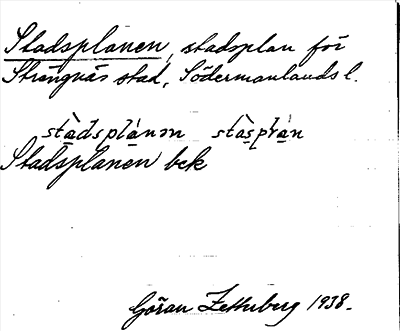 Stadsplanen, stadsplan för
Strängnäs stad, Södermanlands l.
stàdsplánm stàsplán
Stadsplanen bek
Göran Zetterberg 1938.